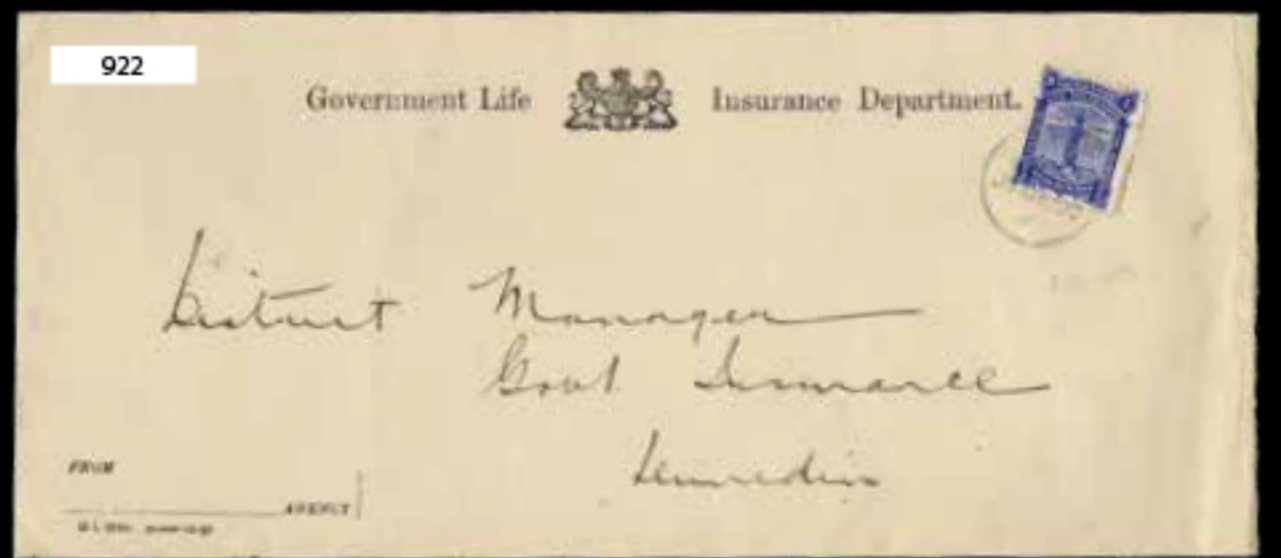 922
Government Life Insurance Department.
District Manager
Govt Insurance
Dunedin
FROM
AGENCY